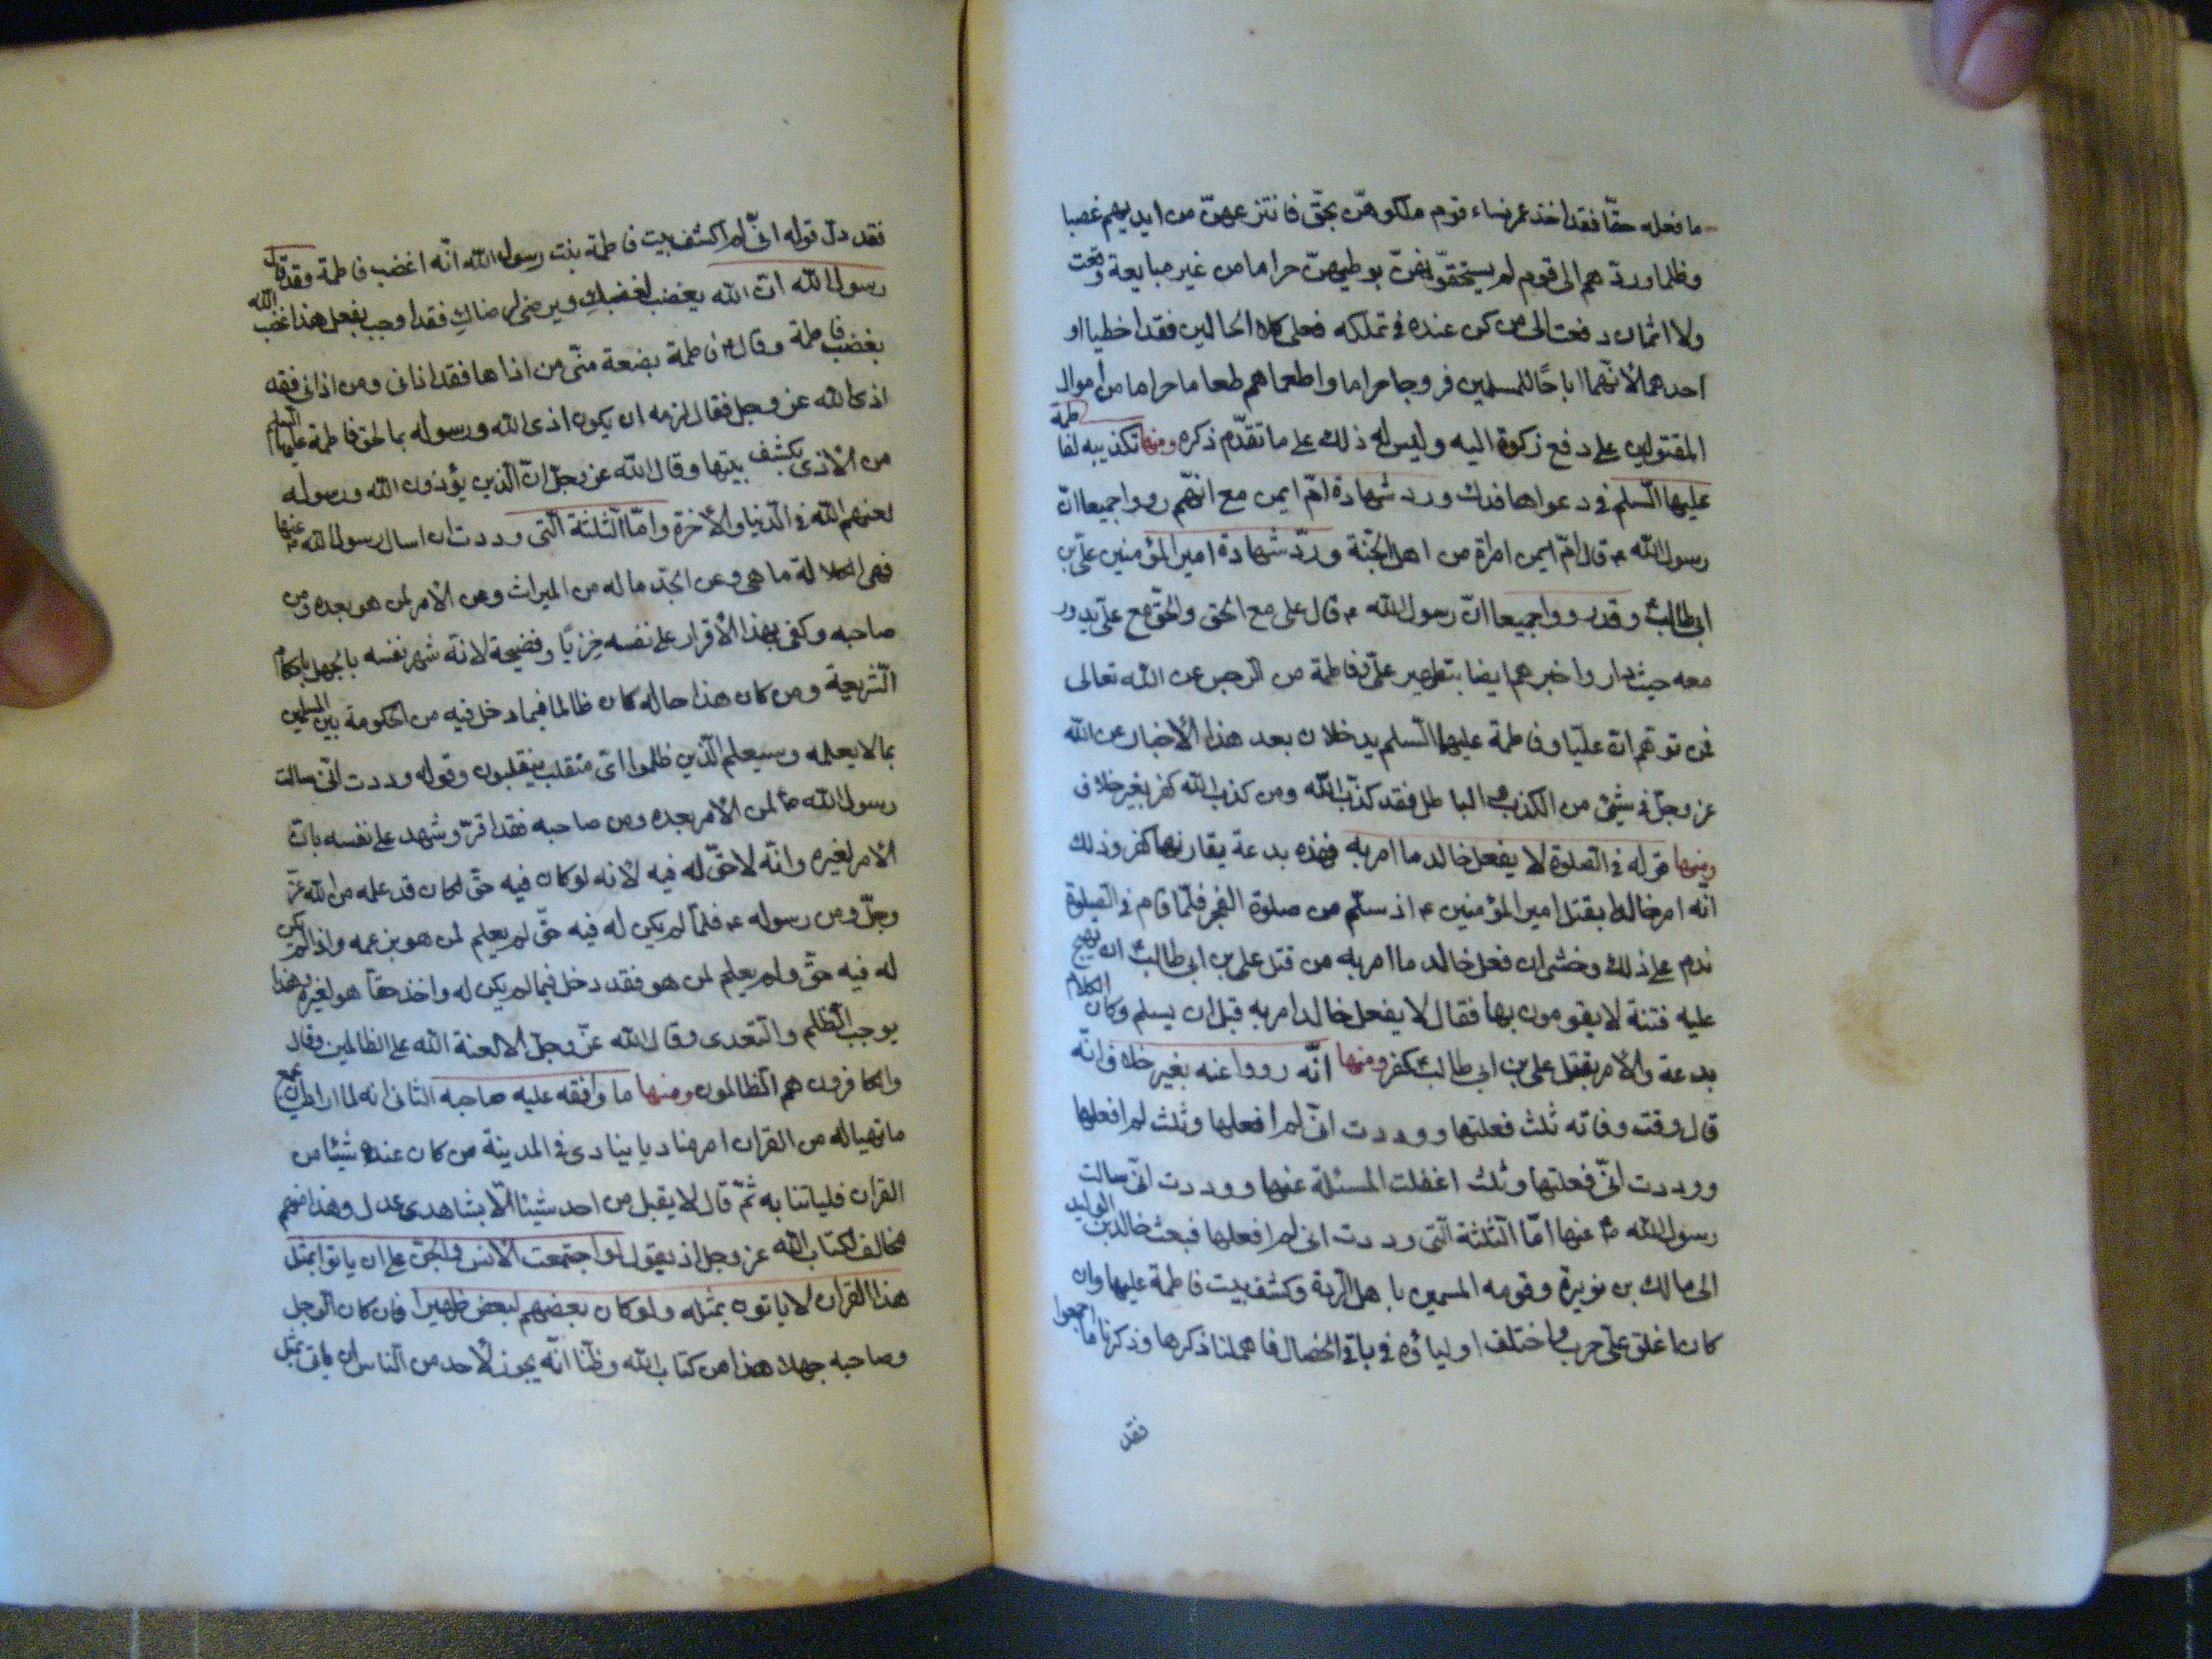 ما فعله حقّا فقد اخذ عمر نساء قوم ملكوهنّ بحقّ فانتزعهنّ من ايديهم غصبا
وظلما وردّهم الى قوم لم يستحقّوهنّ بوطيهنّ حراما من غير مبايعة وقعت
ولا اثمان دفعت الى من كن عنده في تملكه فعلى كلا الحالين فقد اخطيا او
احدهما لانّهما اباحا للمسلمين فروجا حراما واطعماهم طعاما حراما من اموال
المقتولين على دفع زكوة اليه وليس له ذلك على ما تقدّم ذكره ومنها تكذيبه لفاطمة
عليها السّلم في دعواها فدك ورد شهادة امّ ايمن مع انّهم رووا جميعا انّ
رسول الله ص قال امّ ايمن امراة من اهل الجنّة وردّ شهادة امير المؤمنين علىّ بن
ابى طالب ع وقد رووا جميعا انّ رسول الله ص قال على مع الحق والحقّ مع علىّ يدور
معه حيث دار واخبرهم ايضا بتطهير علىّ وفاطمة من الرجس عن الله تعالى
فمن توهّم ان عليّا وفاطمة عليهما السّلم يدخلان بعد هذا الأخبار من الله
عز وجلّ في شيئ من الكذب والباطل فقد كذّب الله ومن كذب الله كفر بغير خلاف
ومنها قوله في الصّلوة لا يفعل خالد ما امر به فهذه بدعة يقارنها كفر وذلك
انّه امر خالدا بقتل امير المؤمنين ع اذ سلّم من صلوة الفجر فلمّا قام في الصّلوة
ندم على ذلك وخشى ان فعل خالد ما امر به من قتل على بن ابى طالب ع ان يهيج
عليه فتنة لا يقومون بها فقال لا يفعل خالد امر به قبل ان يسلم وكان الكلام
بدعة والأمر بقتل على بن ابى طالب ع كفر ومنها انّه رووا عنه بغير خلاف انّه
قال وقت وفاته ثلث فعلتها ووددت انّى لم افعلها وثلث لم افعلها
ووددت انّى فعلتها وثلث اغفلت المسئلة عنها ووددت انّى سالت
رسول الله ص عنها امّا الثّلثة الّتى وددت انى لم افعلها فبعث خالد بن الوليد
الى مالك بن نويرة وقومه المسمين باهل الرّدة وكشف بيت فاطمة عليها وان
كان اغلق على حرب واختلف اولياؤه في باقى الخصال فاهملنا ذكرها وذكرنا ما اجمعوا
فقد
فقد دلّ قوله انّى لم اكشف بيت فاطمة بنت رسول الله انّه اغضب فاطمة وقد قال
رسول الله ان الله يغضب لغضبك ويرضى لرضاك فقد اوجب بفعل هذا غضب الله
بغضب فاطمة وقال ص فاطمة بضعة منّى من اذاها فقد اذانى ومن اذانى فقد
اذى الله عز وجل فقال لزمه ان يكون اذى الله ورسوله بما لحق فاطمة عليها السلم
من الأذى بكشف بيتها وقال الله عز وجلّ انّ الّذين يؤذون الله ورسوله
لعنهم الله في الدّنيا والأخرة وامّا الثّلثة الّتى وددت ان اسال رسول الله ص عنها
فهى الكلالة ما هى وعن الجدّ ما له من الميراث وعن الأمر لمن هو بعده ومن
صاحبه وكفى بهذا الأقرار على نفسه خزيّا وفضيحة لانّه شهر نفسه بالجهل باحكام
الشّريعة ومن كان هذا حاله كان ظالما فيما دخل فيه من الحكومة بين المسلمين
بما لا يعلمه وسيعلم الّذين ظلموا اىّ منقلب ينقلبون وقوله وددت انّى سالت
رسول الله ص لمن الأمر بعده ومن صاحبه فقد اقرّ وشهد على نفسه بانّ
الأمر لغيره وانّه لا حقّ له فيه لأنه لو كان فيه حقّ لكان قد علمه من الله عزّ
وجلّ ومن رسوله ص فلمّا لم يكن له فيه حقّ لم يعلم لمن هو بزعمه واذا لم يكن
له فيه حقّ ولم يعلم لمن هو فقد دخل فيما لم يكن له واخذ حقّا هو لغيره وهذا
يوجب الظّلم والتّعدى وقال الله عزّ وجلّ الا لعنة الله على الظالمين وقال
والكافرون هم الظّالمون ومنها ما وافقه عليه صاحبه الثانى انه لما اراد ان يجمع
ما تهيا له من القران امر مناديا ينادى في المدينة من كان عنده شيئا من
القران فلياتنا به ثمّ قال لا يقبل من احد شيئا الّا بشاهدى عدل وهذا منهم
مخالف لكتاب الله عز وجل اذ يقول لو اجتمعت الأنس والجن على ان ياتوا بمثل
هذا القران لا ياتون بمثله ولو كان بعضهم لبعض ظهيرا فان كان الرّجل
وصاحبه جهلا هذا من كتاب الله وظنّا انّه يجوز لأحد من النّاس ان ياتى بمثل